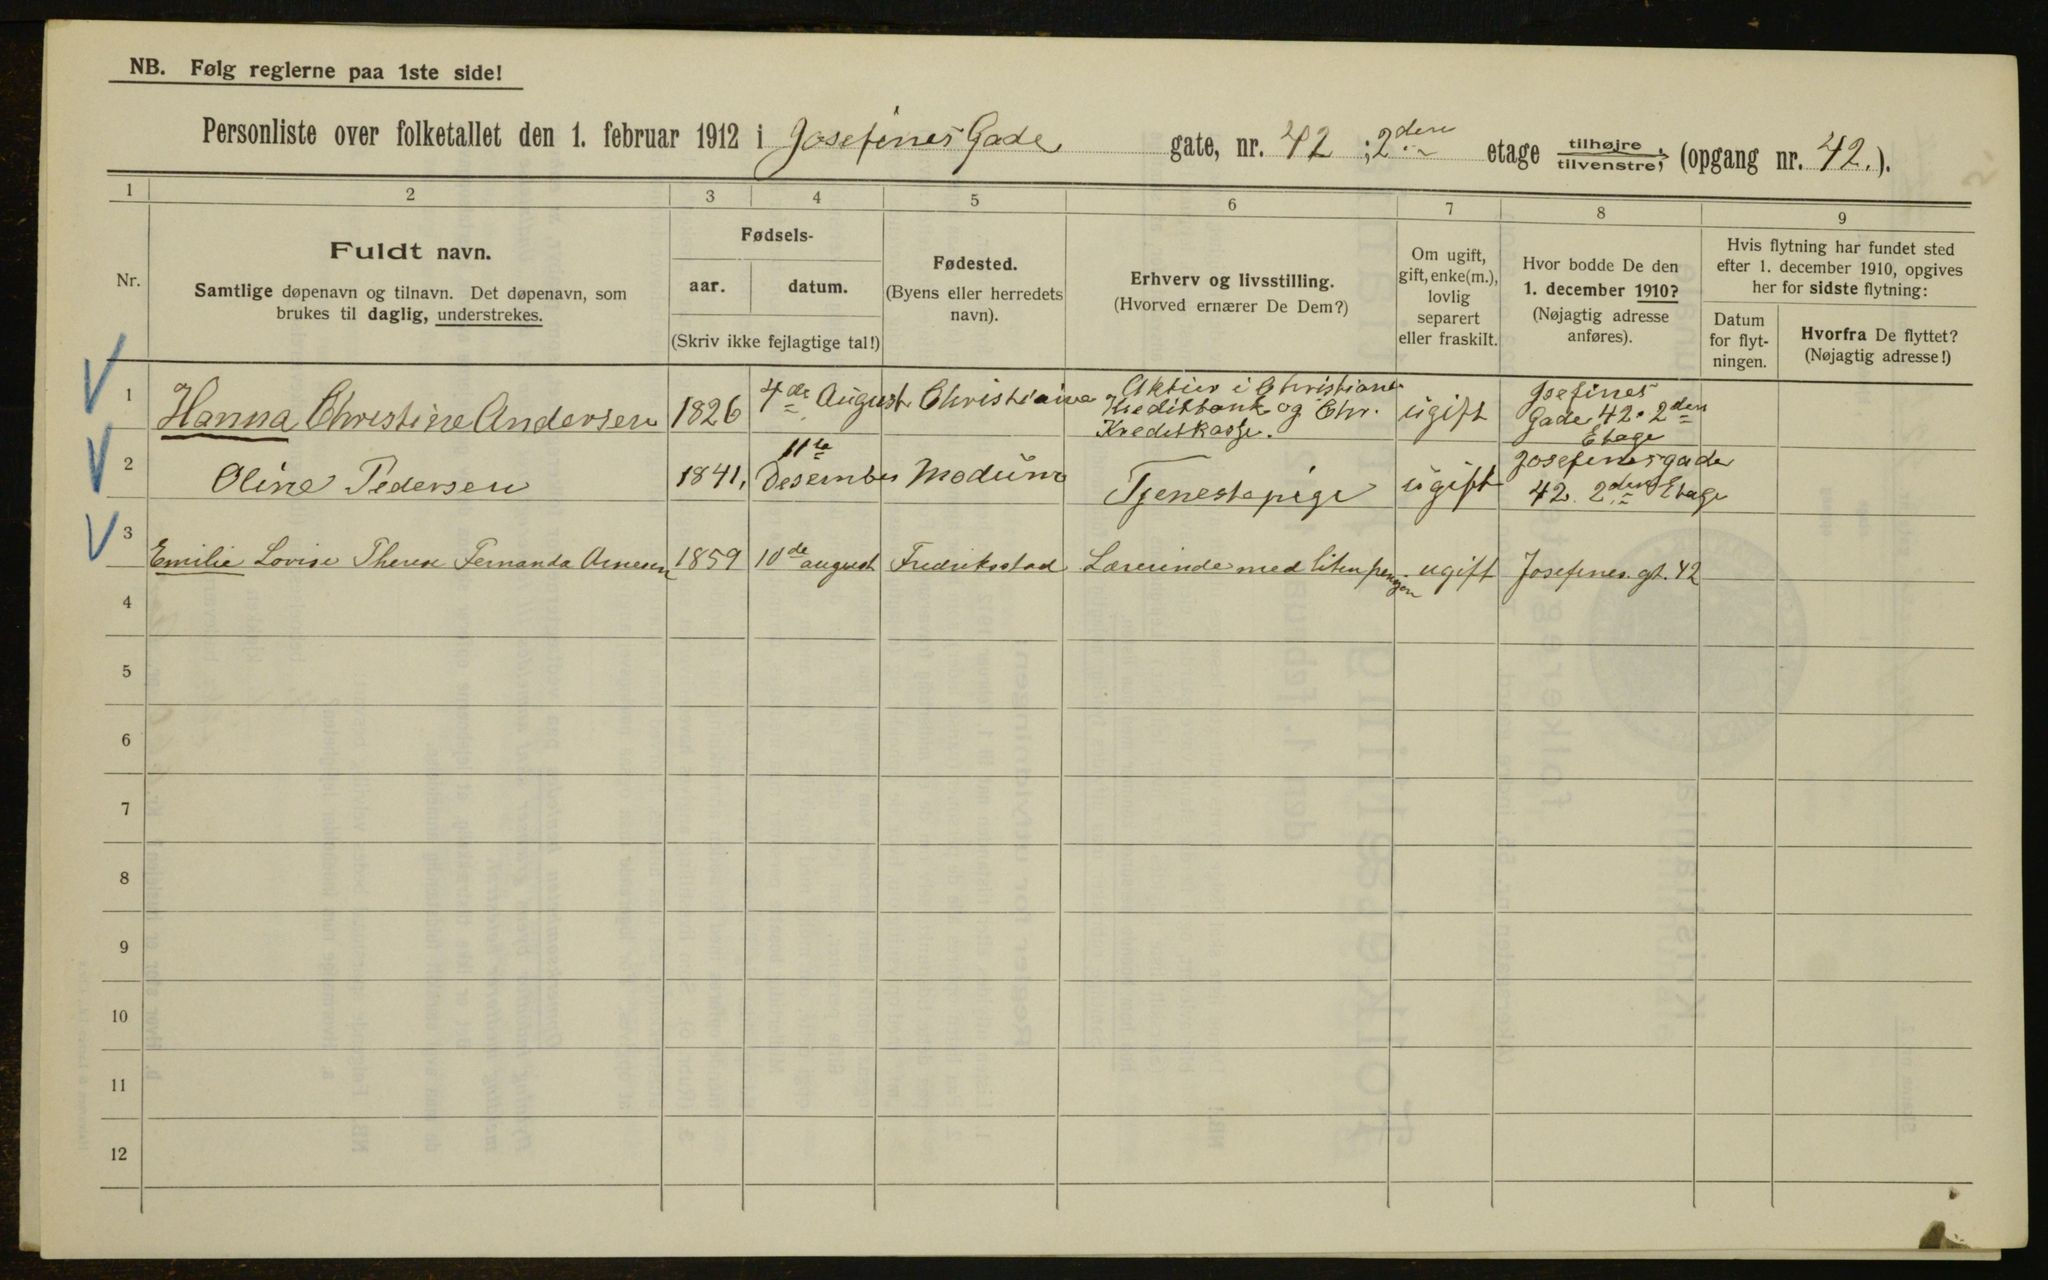 NB. Følg reglerne paa 1ste side!
Personliste over folketallet den 1. februar 1912 i Josefines Gade gate, nr. 42 ; 2den etage tilhøjre, tilvenstre, (opgang nr. 42.).
1 2 3 4 5 6 7 8 9
Nr.
Fuldt navn.
Samtlige døpenavn og tilnavn. Det døpenavn, som
brukes til daglig, understrekes.
Fødsels-
aar. datum.
(Skriv ikke fejlagtige tal!)
Fødested.
(Byens eller herredets
navn).
Erhverv og livsstilling.
(Hvorved ernærer De Dem?)
Om ugift,
gift, enke(m.),
lovlig
separert
eller fraskilt.
Hvor bodde De den
1. december 1910?
(Nøjagtig adresse
anføres).
Hvis flytning har fundet sted
efter 1. december 1910, opgives
her for sidste flytning:
Datum
for flyt-
ningen.
Hvorfra De flyttet?
(Nøjagtig adresse!)
1
Hanna Christine Andersen
1826
4de August
Christiania
Aktier i Christiania
Kreditbank og Chr.
Kreditkasse.
ugift
Josefines
Gade 42. 2den
Etage
2
Oline Pedersen
1841,
11te
Desember
Modum
Tjenestepige
ugift
Josefines gade
42. 2den Etage
3
Emilie Lovise Therese Fernanda Arnesen
1859
10de
august
Fredriksstad
Lærerinde med liten pension
ugift
Josefines. gt. 42
4
5
6
7
8
9
10
11
12